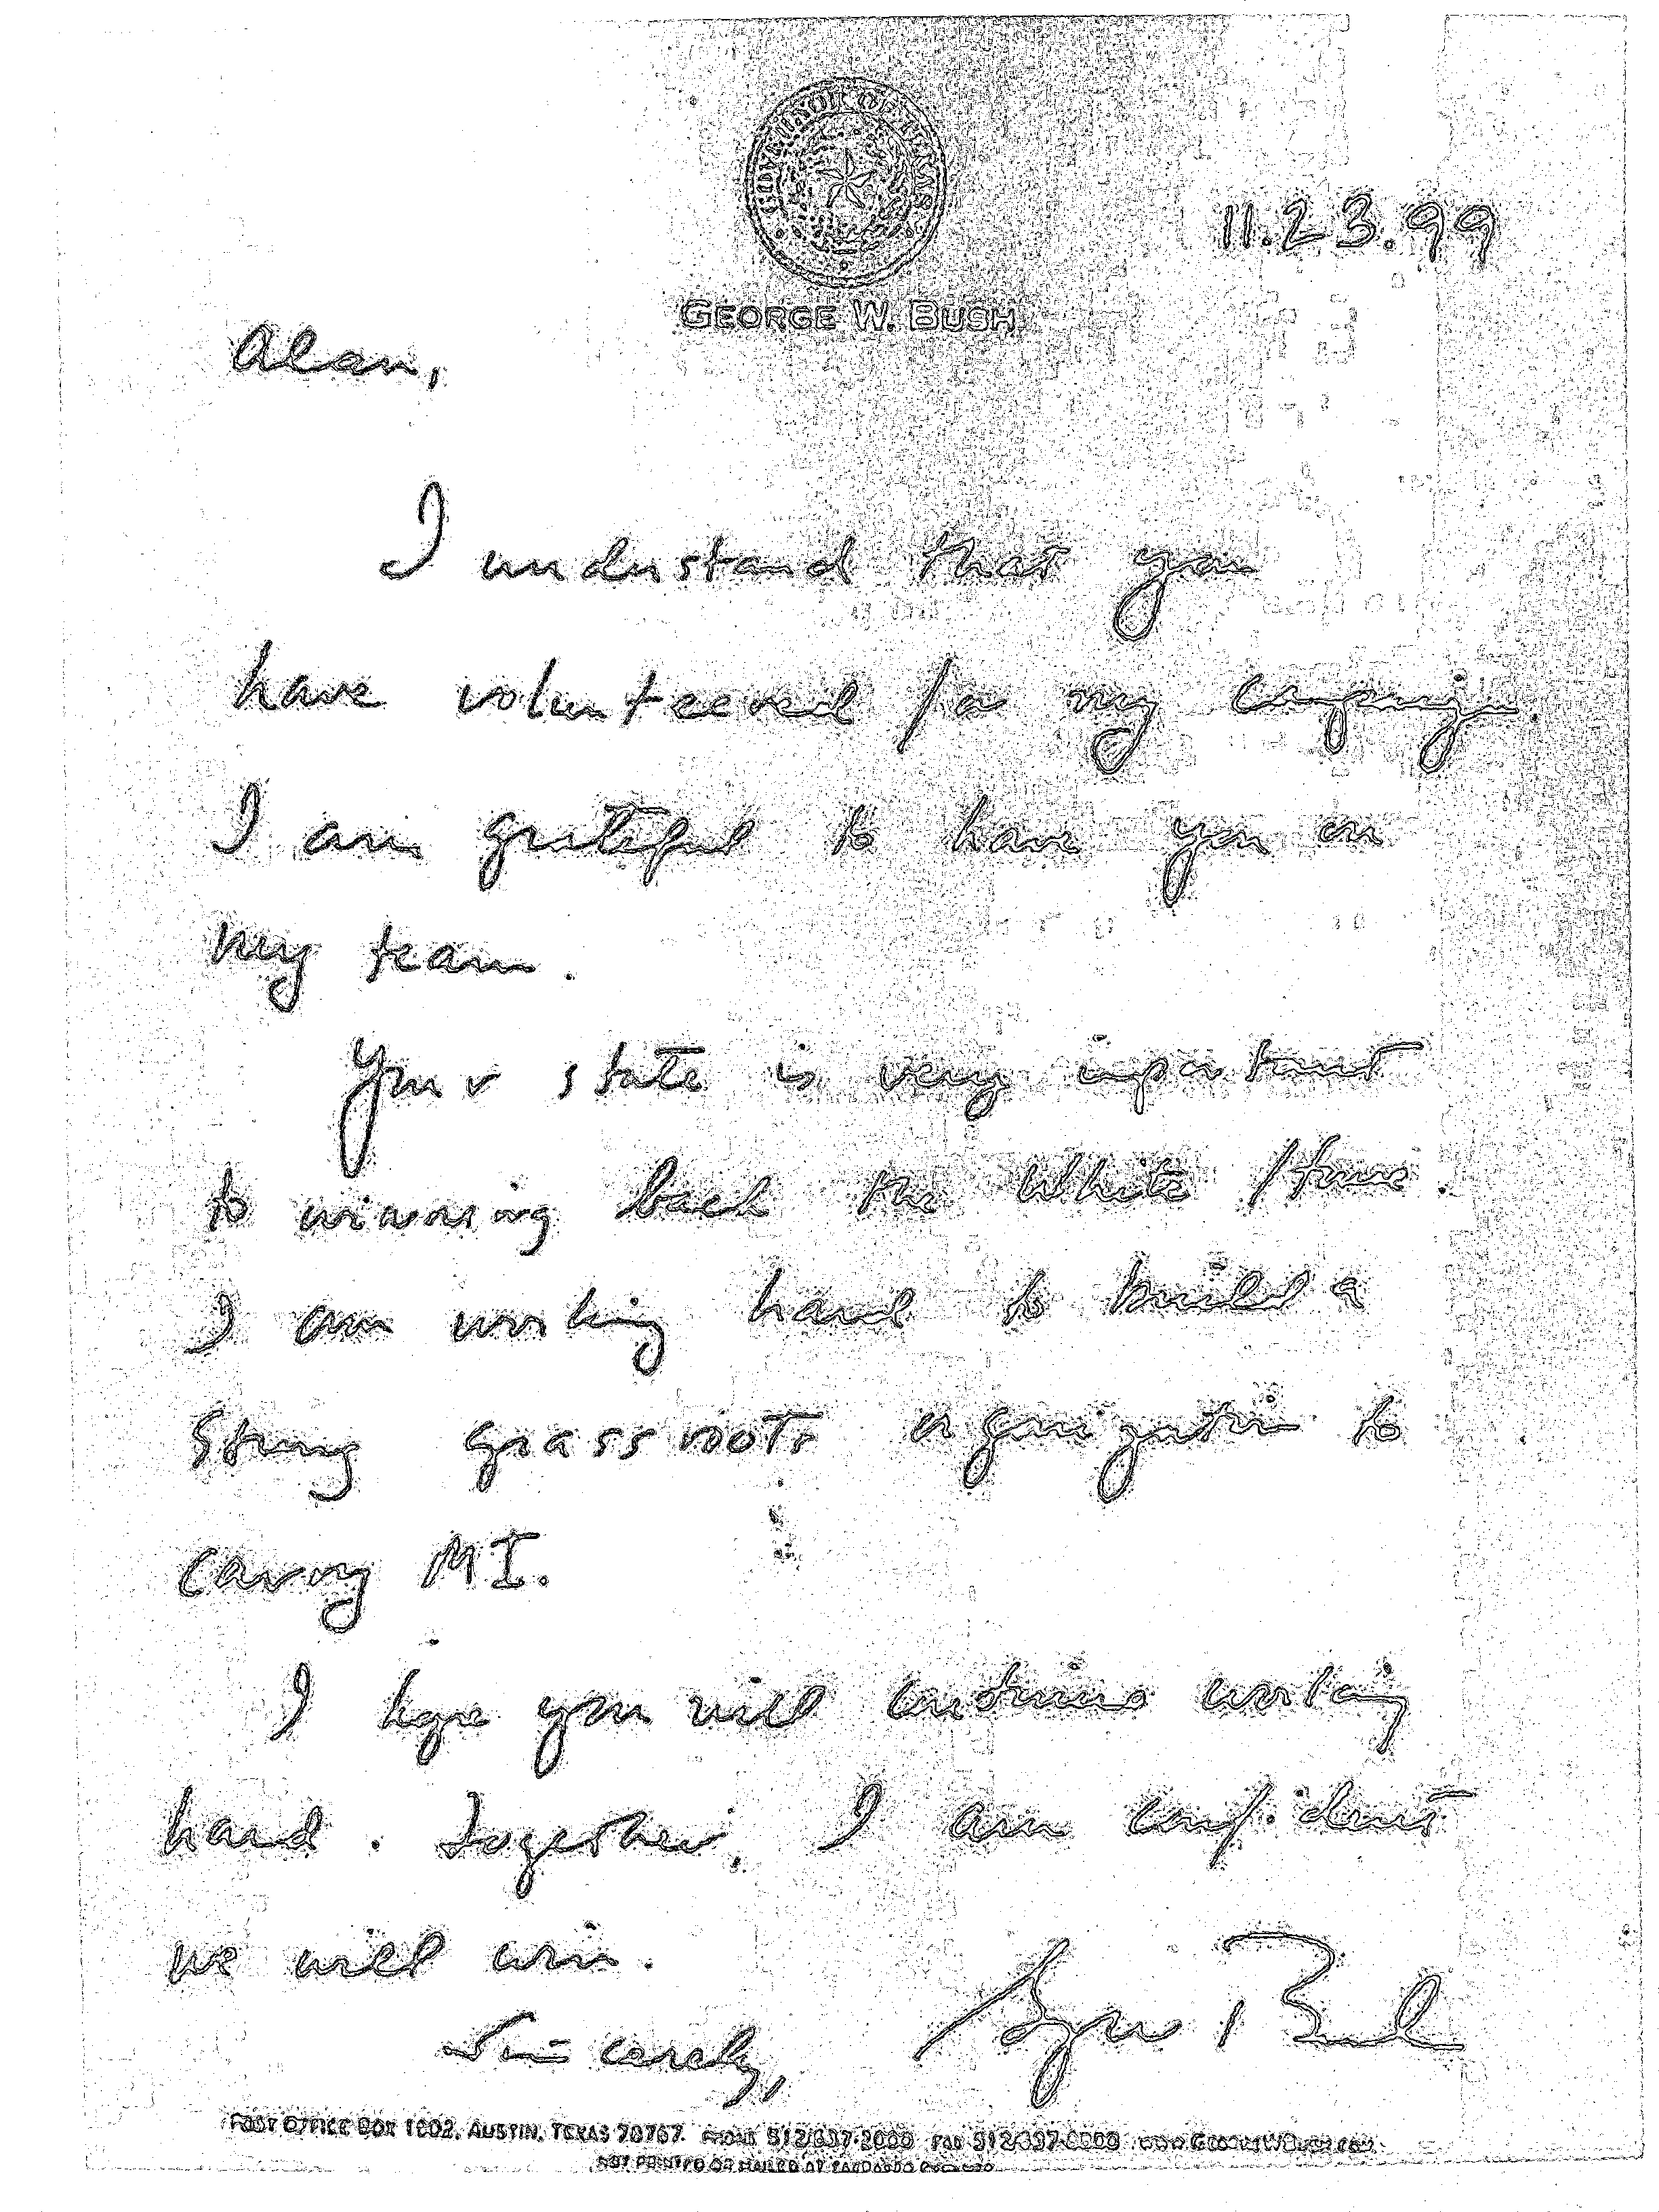 GOVERNOR OF TEXAS
11.23.99
GEORGE W. BUSH
Alan,
I understand that you
have volunteered for my campaign.
I am grateful to have you on
my team.
Your state is very important
to winning back the White House.
I am working hard to build a
strong grass roots organization to
carry MI.
I hope you will continue working
hard. Together, I am confident
we will win.
Sincerely,
George Bush
POST OFFICE BOX 1902, AUSTIN, TEXAS 78767 PHONE 512/637-2000 FAX WWW.GEORGEWBUSH.COM
NOT PRINTED OR MAILED AT TAXPAYERS EXPENSE